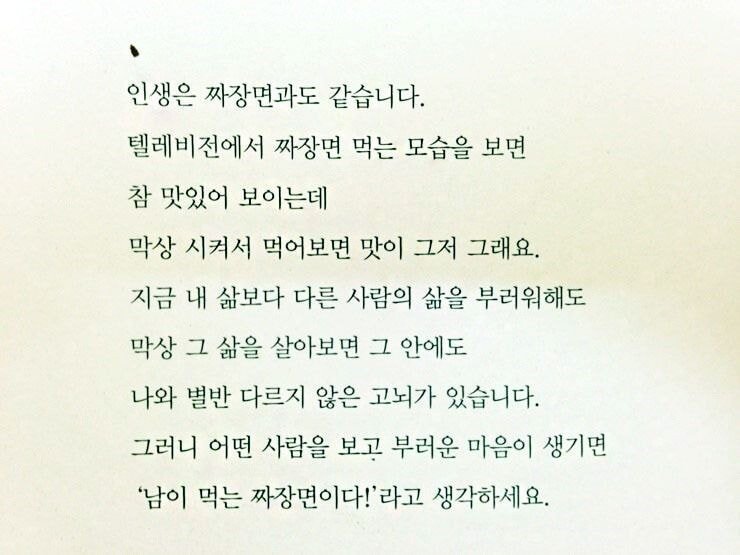 인생은 짜장면과도 같습니다.
텔레비전에서 짜장면 먹는 모습을 보면
참 맛있어 보이는데
막상 시켜서 먹어보면 맛이 그저 그래요.
지금 내 삶보다 다른 사람의 삶을 부러워해도
막상 그 삶을 살아보면 그 안에도
나와 별반 다르지 않은 고뇌가 있습니다.
그러니 어떤 사람을 보고 부러운 마음이 생기면
‘남이 먹는 짜장면이다!’라고 생각하세요.